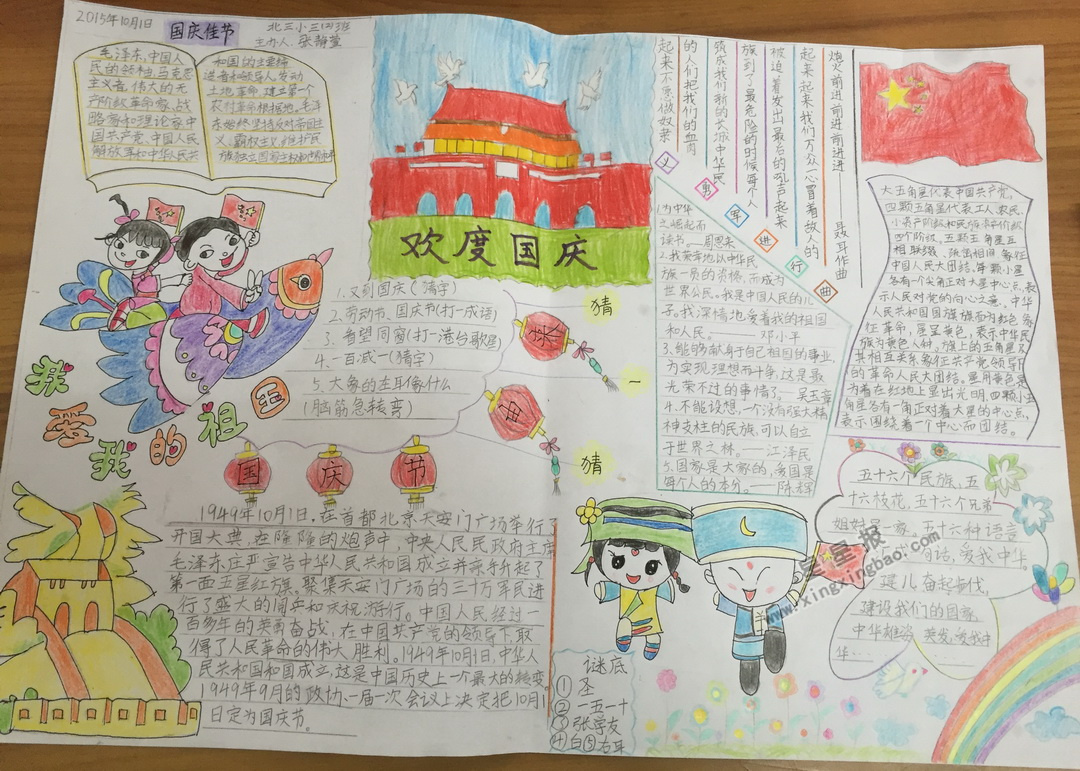 2015年10月1日
国庆佳节
北三小三(2)班
主办人:张静萱
毛泽东,中国人
民的领袖,马克思
主义者,伟大的无
产阶级革命家、战
略家和理论家中
国共产党、中国人民
解放军和中华人民共
和国的主要缔
造者和领导人,发动
土地革命,建立第一个
农村革命根据地,毛泽
东始终坚持反对帝国主
义、霸权主义,维护民
我爱我的祖国
欢度国庆
1.又到国庆(猜字)
2.劳动节、国庆节(打一成语)
3.希望同窗(打一港台歌星)
4.一百减一(猜字)
5.大象的左耳像什么
(脑筋急转弯)
猜
一
猜
来
国庆节
1949年10月1日,在首都北京天安门广场举行了
开国大典,在隆隆的炮声中,中央人民政府主席
毛泽东庄严宣告中华人民共和国成立并亲手升起了
第一面五星红旗。聚集天安门广场的三十万军民进
行了盛大的阅兵和庆祝游行。中国人民经过一
百多年的英勇奋战,在中国共产党的领导下取
得了人民革命的伟大胜利。1949年10月1日,中华人
民共和国和国成立,这是中国历史上一个最大的转变
1949年9月的政协一届一次会议上决定把10月1
日定为国庆节。
义勇军进行曲
聂耳作曲
起来不愿做奴隶
的人们把我们的血肉
筑成我们新的长城中华民
族到了最危险的时候每个人
被迫着发出最后的吼声起来
起来起来我们万众一心冒着敌人的
炮火前进前进前进进
1.为中华
之崛起而
读书。——周恩来
2.我荣幸地以中华民
族一员的资格,而成为
世界公民。我是中国人民的儿
子。我深情地爱着我的祖国
和人民。——邓小平
3.能够献身于自己祖国的事业,
为实现理想而斗争,这是最
光荣不过的事情了。——吴玉章
4.不能设想,一个没有强大精
神支柱的民族,可以自立
于世界之林。——江泽民
5.国家是大家的,爱国是
每个人的本分。——陈辉
大五角星代表中国共产党,
四颗五角星代表工人、农民、
小资产阶级和民族资产阶级
四个阶级,五颗五角星互
相联缀、疏出相间,象征
中国人民大团结。每颗小星
各有一个尖角正对大星中心点,表
示人民对党的向心之意。中华
人民共和国国旗旗面为红色,象
征革命,星呈黄色,表示中华民
族为黄色人种。旗上的五角星及
其相互关系象征共产党领导下
的革命人民大团结。星用黄色是
为着在红地上显出光明,四颗小五
角星各有一角正对着大星的中心点,
表示围绕着一个中心而团结。
五十六个民族,五
十六枝花,五十六个兄弟
姐妹是一家。五十六种语言
句话,爱我中华。
建儿奋起步伐,
建设我们的国家。
中华雄姿英发,爱我中
华……
谜底
①圣
②一五一十
③张学友
④白⑤右耳
星星报
www.xingxingbao.com